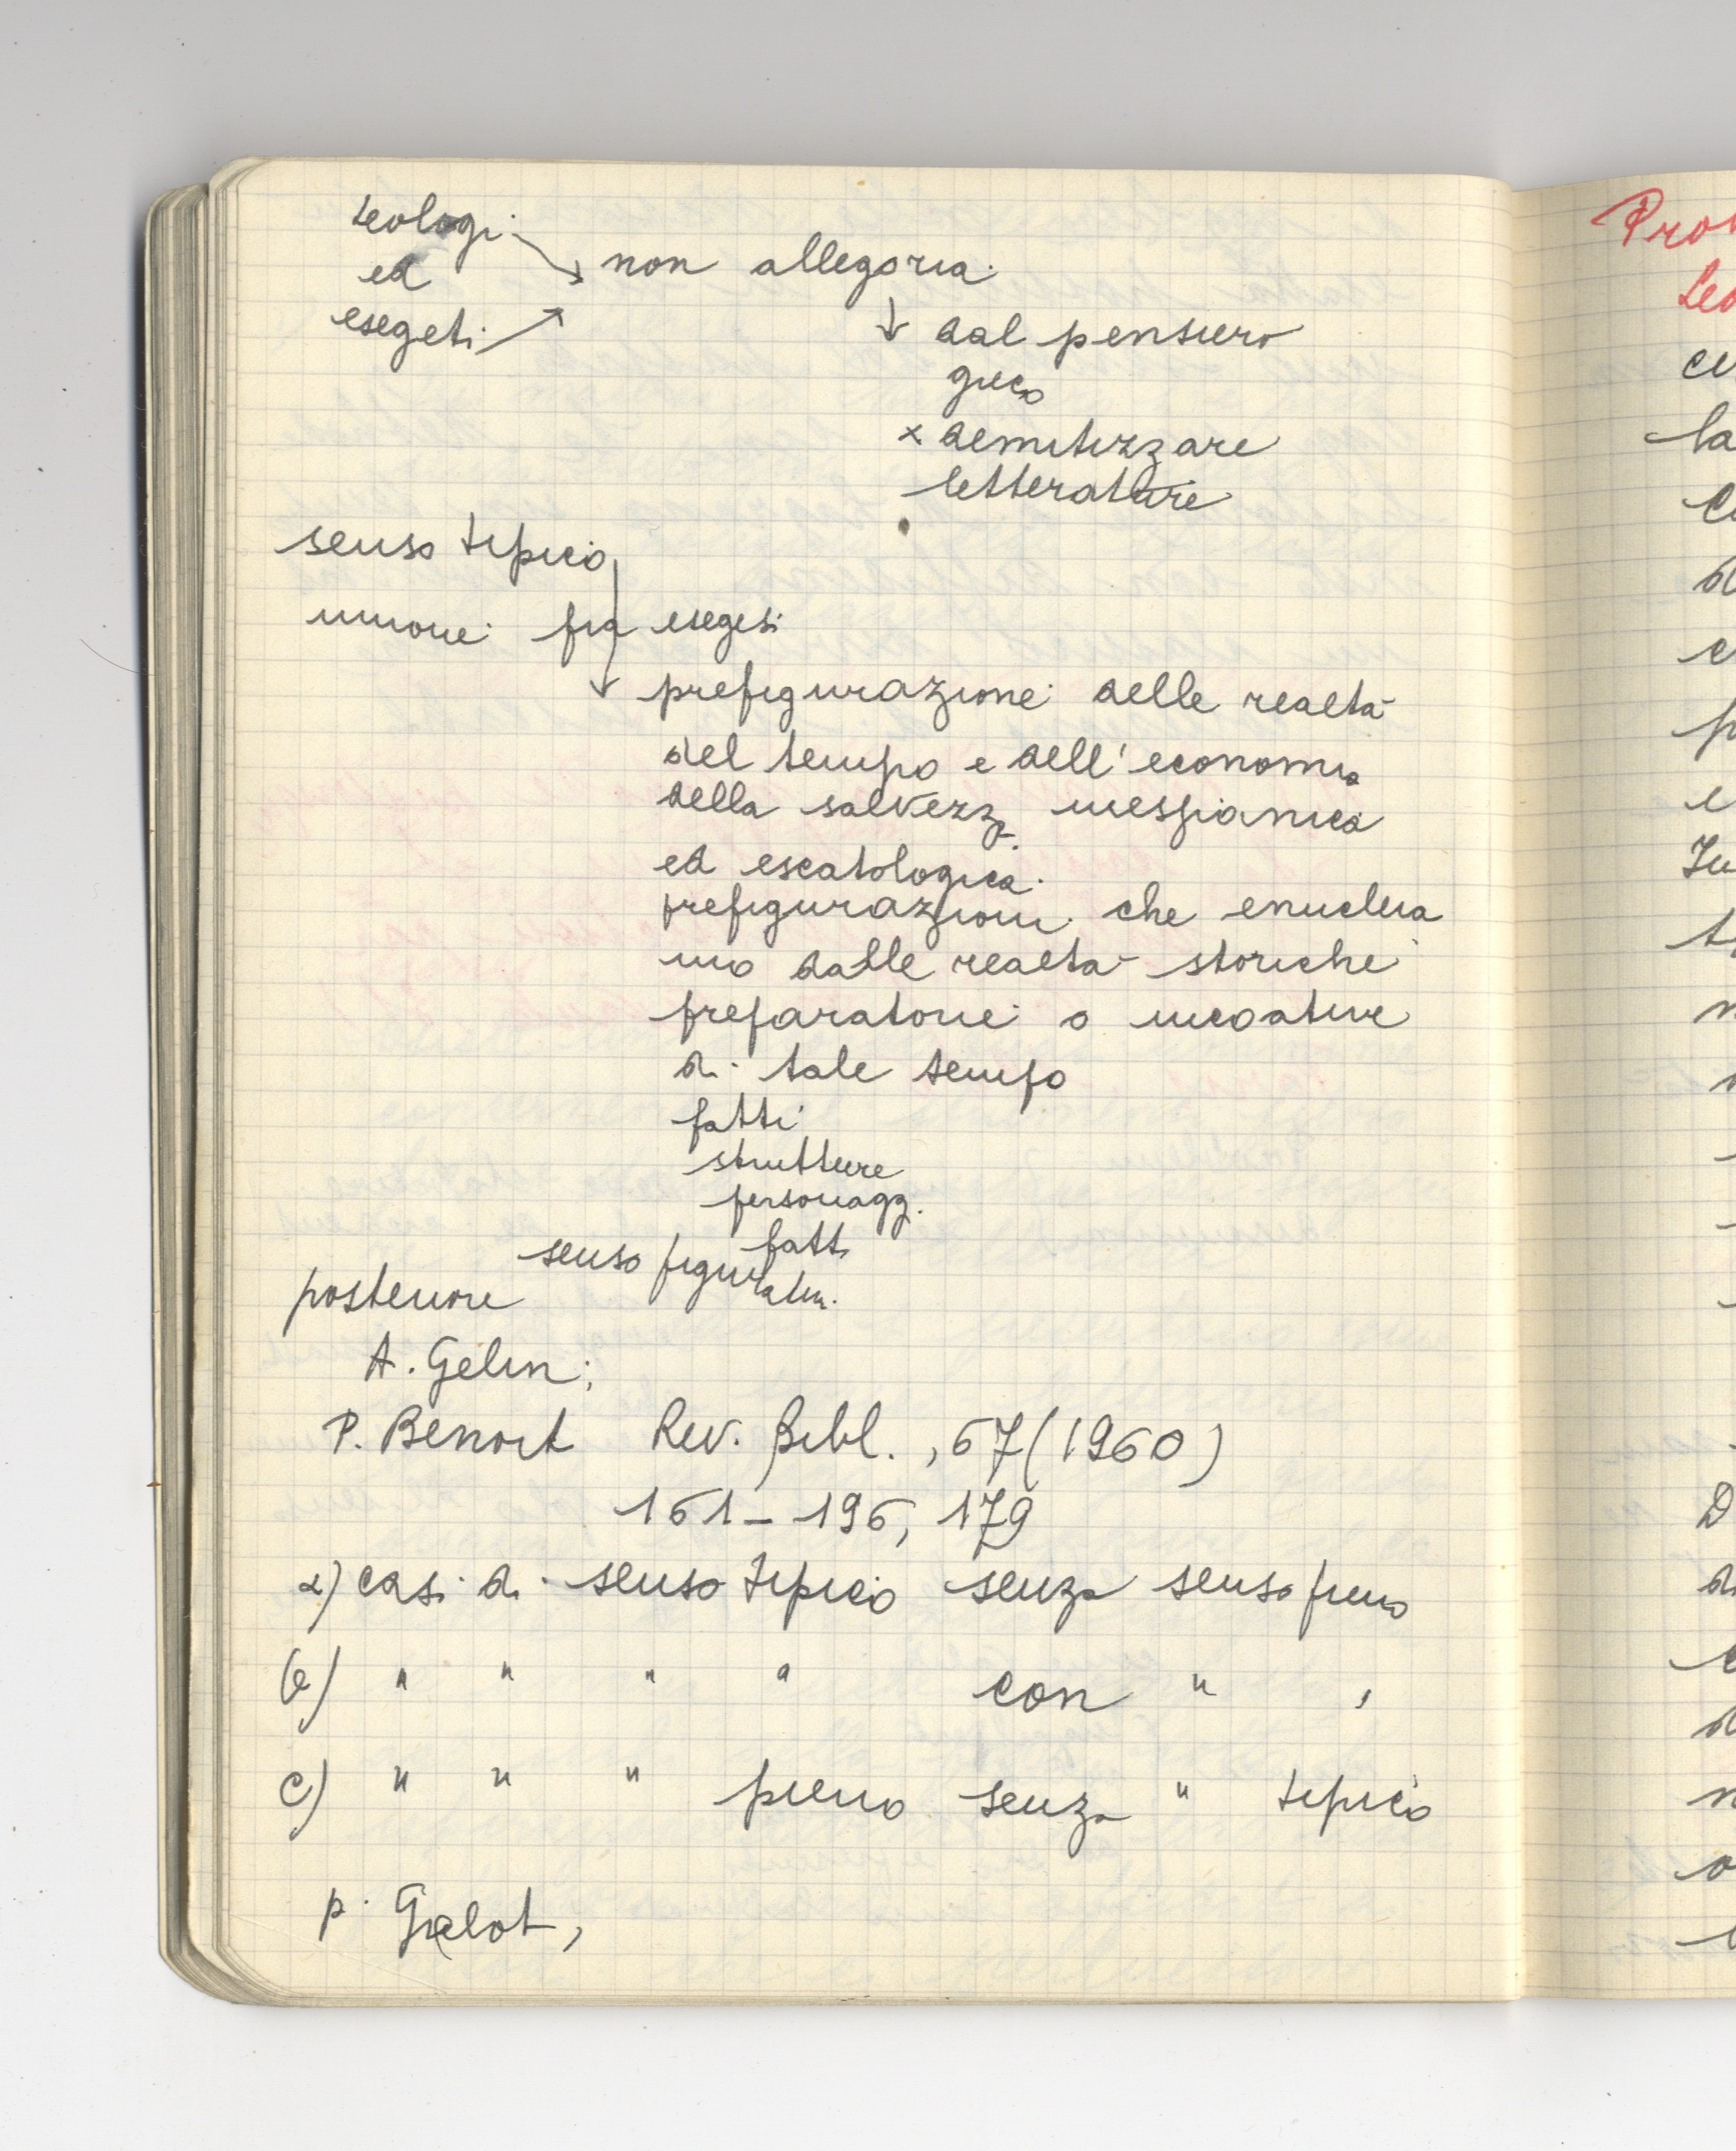 teologi
ed
esegeti
non allegoria
dal pensiero
greco
x demitizzare
letterature
senso tipico
unione fra esegesi
prefigurazione delle realtà
del tempo e dell'economia
della salvezza messianica
ed escatologica.
prefigurazioni che enuclea
no dalle realtà storiche
preparatorie o incoative
di tale tempo
fatti
strutture
personagg.
fatti
senso figurativ.
posteriore
A. Gelin;
P. Benoit Rev. Bibl., 67 (1960)
161-196, 179
a) casi di senso tipico senza senso pieno
b) " " " " con " "
c) " " " pieno senza " tipico
p. Grelot,
Pro
la